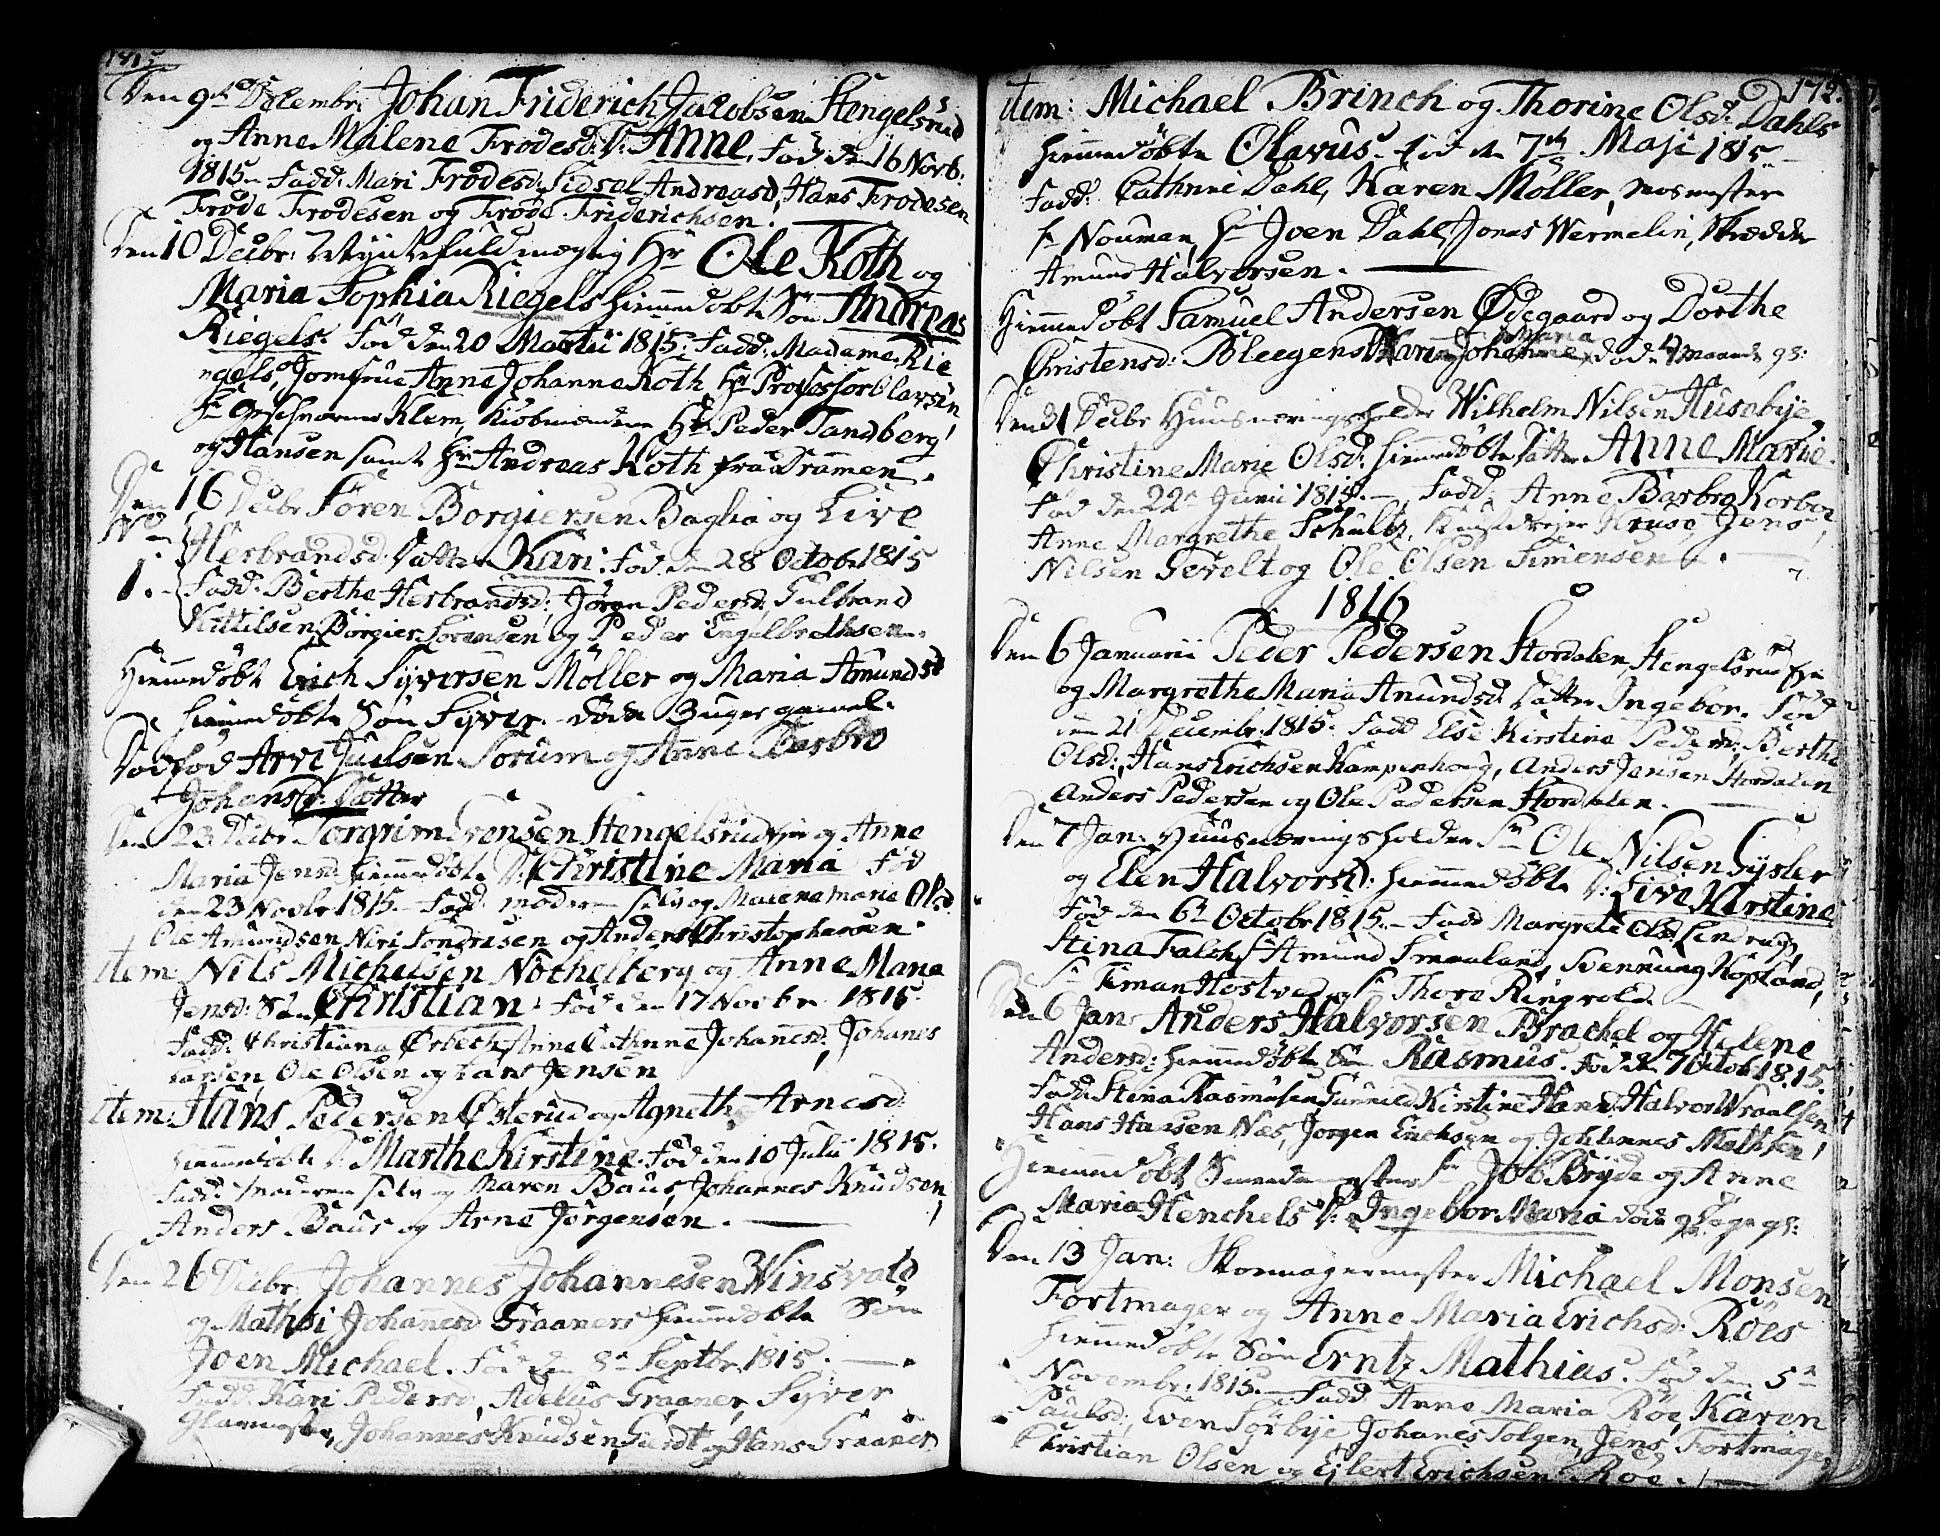 1815
Den 9de Decembr: Johan Friderich Jacobsen Hengelsrud
og Anne Malene Frodesd: D: Anne, Fød den 16 Novb:
1815. Fadd: Mari Frodesd: Sidsel Andreasd, Hans Frodesen
Frode Frodesen og Frode Friderichsen.
Den 10 Decbr: Myntefuldmægtig Hr Ole Koth og
Maria Sophia Riegels hiemmedøbte Søn Andreas
Riegels. Fød den 20 Martii 1815. Fadd: Madame Rie
ngels, Jomfrue Anne Johanne Koth Hr Professor Olavsen,
Klem, Kiøbmændene Hr Peder Tandberg
og Hansen samt Hr Andreas Koth fra Drammen.
Den 16 Decbr Søren Borgiersen Baglia og Live
No 1. Herbrandsd: Datter Kari: Fød den 28 Octobr 1815
Fadd: Berthe Herbrandsd: Jøran Pedersd, Gulbrand
Kittilsen, Børgier Sørensen og Peder Engelbrethsen.
Hiemmedøbt Erich Syversen Møller og Maria Amundsd
hiemmedøbte Søn Syver. døde 3 uger gamel.
Dødfød Arve Juelsen Sorum og Anne Barbro
Johansd: Datter
Den 23 Decbr Torgrim Evensen Hengelsrud og Anne
Maria Jensd: hiemmedøbte D: Christine Maria Fød
den 23 Novbr 1815. Fadd: moderen selv og Malene Marie Olsd.
Ole Amundsen Niri Sondresen og Anders Christophersen.
Item Nils Michelsen Nøchelberg og Anne Maria
Jensd: Søn Christian: Fød den 17 Novbr 1815.
Fadd: Christiana Ørbech, Anne Cathrine Johanesd:, Johanes
Larsen, Ole Olsen og Lars Jensen
Item: Hans Pedersen Østerud og Agnethe Arnesd:
hiemmedøbte D: Marthe Kirstine. Fød den 10 Julii 1815.
Fadd: Moderen selv og Maren Baus, Johannes Knudsen,
Anders Baus og Arne Jørgensen.
Den 26 Decbr. Johannes Johannesen Winsvold
og Mathæi Johanesd Graaners hiemmedøbte Søn
Joen Michael. Fød den 8de Septbr 1815.
Fadd Kari Pedersd, Adelus Graaner, Syver
Glarmester, Johannes Knudsen, Gierdt og Hans Graaner
172.
Item: Michael Brinch og Thorine Olsd: Dahls
hiemmedøbte Olavus. fød den 7de Maji 1815.
Fadd: Cathrine Dahl, Karen Møller,
Sr Nouman, Sr Joen Dahl, Jonas Wermelin, Skrædder
Amund Halvorsen.
Hiemmedøbt Samuel Andersen Ødegaard og Dorthe
Christensd: Bleegens D: Kari Johanne Maria døde 4 Maaneder gl:
Den 31 Decbr Huusnæringsholder Wilhelm Nilsen Husebye,
Christine Marie Olsd: hiemmedøbte Datter Anne Marie.
Fød den 22de Junii 1815. Fadd: Anne Barbra Korbøe,
Anne Margrethe Schultz, Kruse, Jens
Nilsen Gevelt og Ole Olsen Simensen.
1816
Den 6 Januarii Peder Pedersen Stordalen, Hengelsrud Eye
og Margrethe Maria Anundsd: Datter Ingebor. Fød
den 21 Decembr: 1815. Fadd Else Kirstine Pedersd:, Berthe
Olsd:, Hans Erichsen Kampenhoug, Anders Jensen Stordalen
Anders Pedersen og Ole Pedersen Stordalen.
Den 7 Jan: Huusnæringsholder Sr Ole Nilsen Tysler
og Elen Halvorsd: hiemmedøbte D: Live Kirstine
Fød den 6de Octobr 1815. Fadd Margrete Olsd Lendrup,
Stina Falch, Sr Amund Smaaland, Svennung Kopland,
Sr Timan Hostved og Sr Thore Ringvold.
Den 6 Jan: Anders Halvorsen Brachel og Helene
Andersd: hiemmedøbte Søn Rasmus. Fød den 7 Octob 1815.
Fadd: Stina Rasmusen, Gunnild Kirstine Hansd: Halvor Wraalsen,
Hans Hansen Næs, Jørgen Erichsen og Johannes Mathsen,
Hiemmedøbt Smedemester Sr Job Bryde og Anne
Maria Henchels D: Ingebor Maria døde 9 Dage gl:
Den 13 Jan: Skomagermester Michael Monsen
Fortmager og Anne Maria Erichsd: Røes
hiemmedøbte Søn Erntz Mathias. Fød den 5te
Novembr: 1815. Fadd Anne Maria Røe, Karen
Paulsd:, Even Sørbye, Johanes Tolgen, Jens Fortmager
Christian Olsen og Eilert Erichsen Røe.